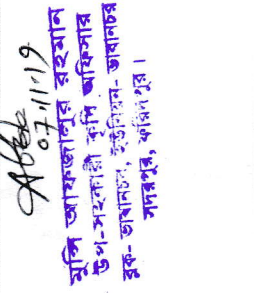 07.11.19
মুন্সি আফজালুর রহমান
উপ-সহকারী কৃষি অফিসার
ব্লক- ভাষানচর, ইউনিয়ন- ভাষানচর
সদরপুর, ফরিদপুর।